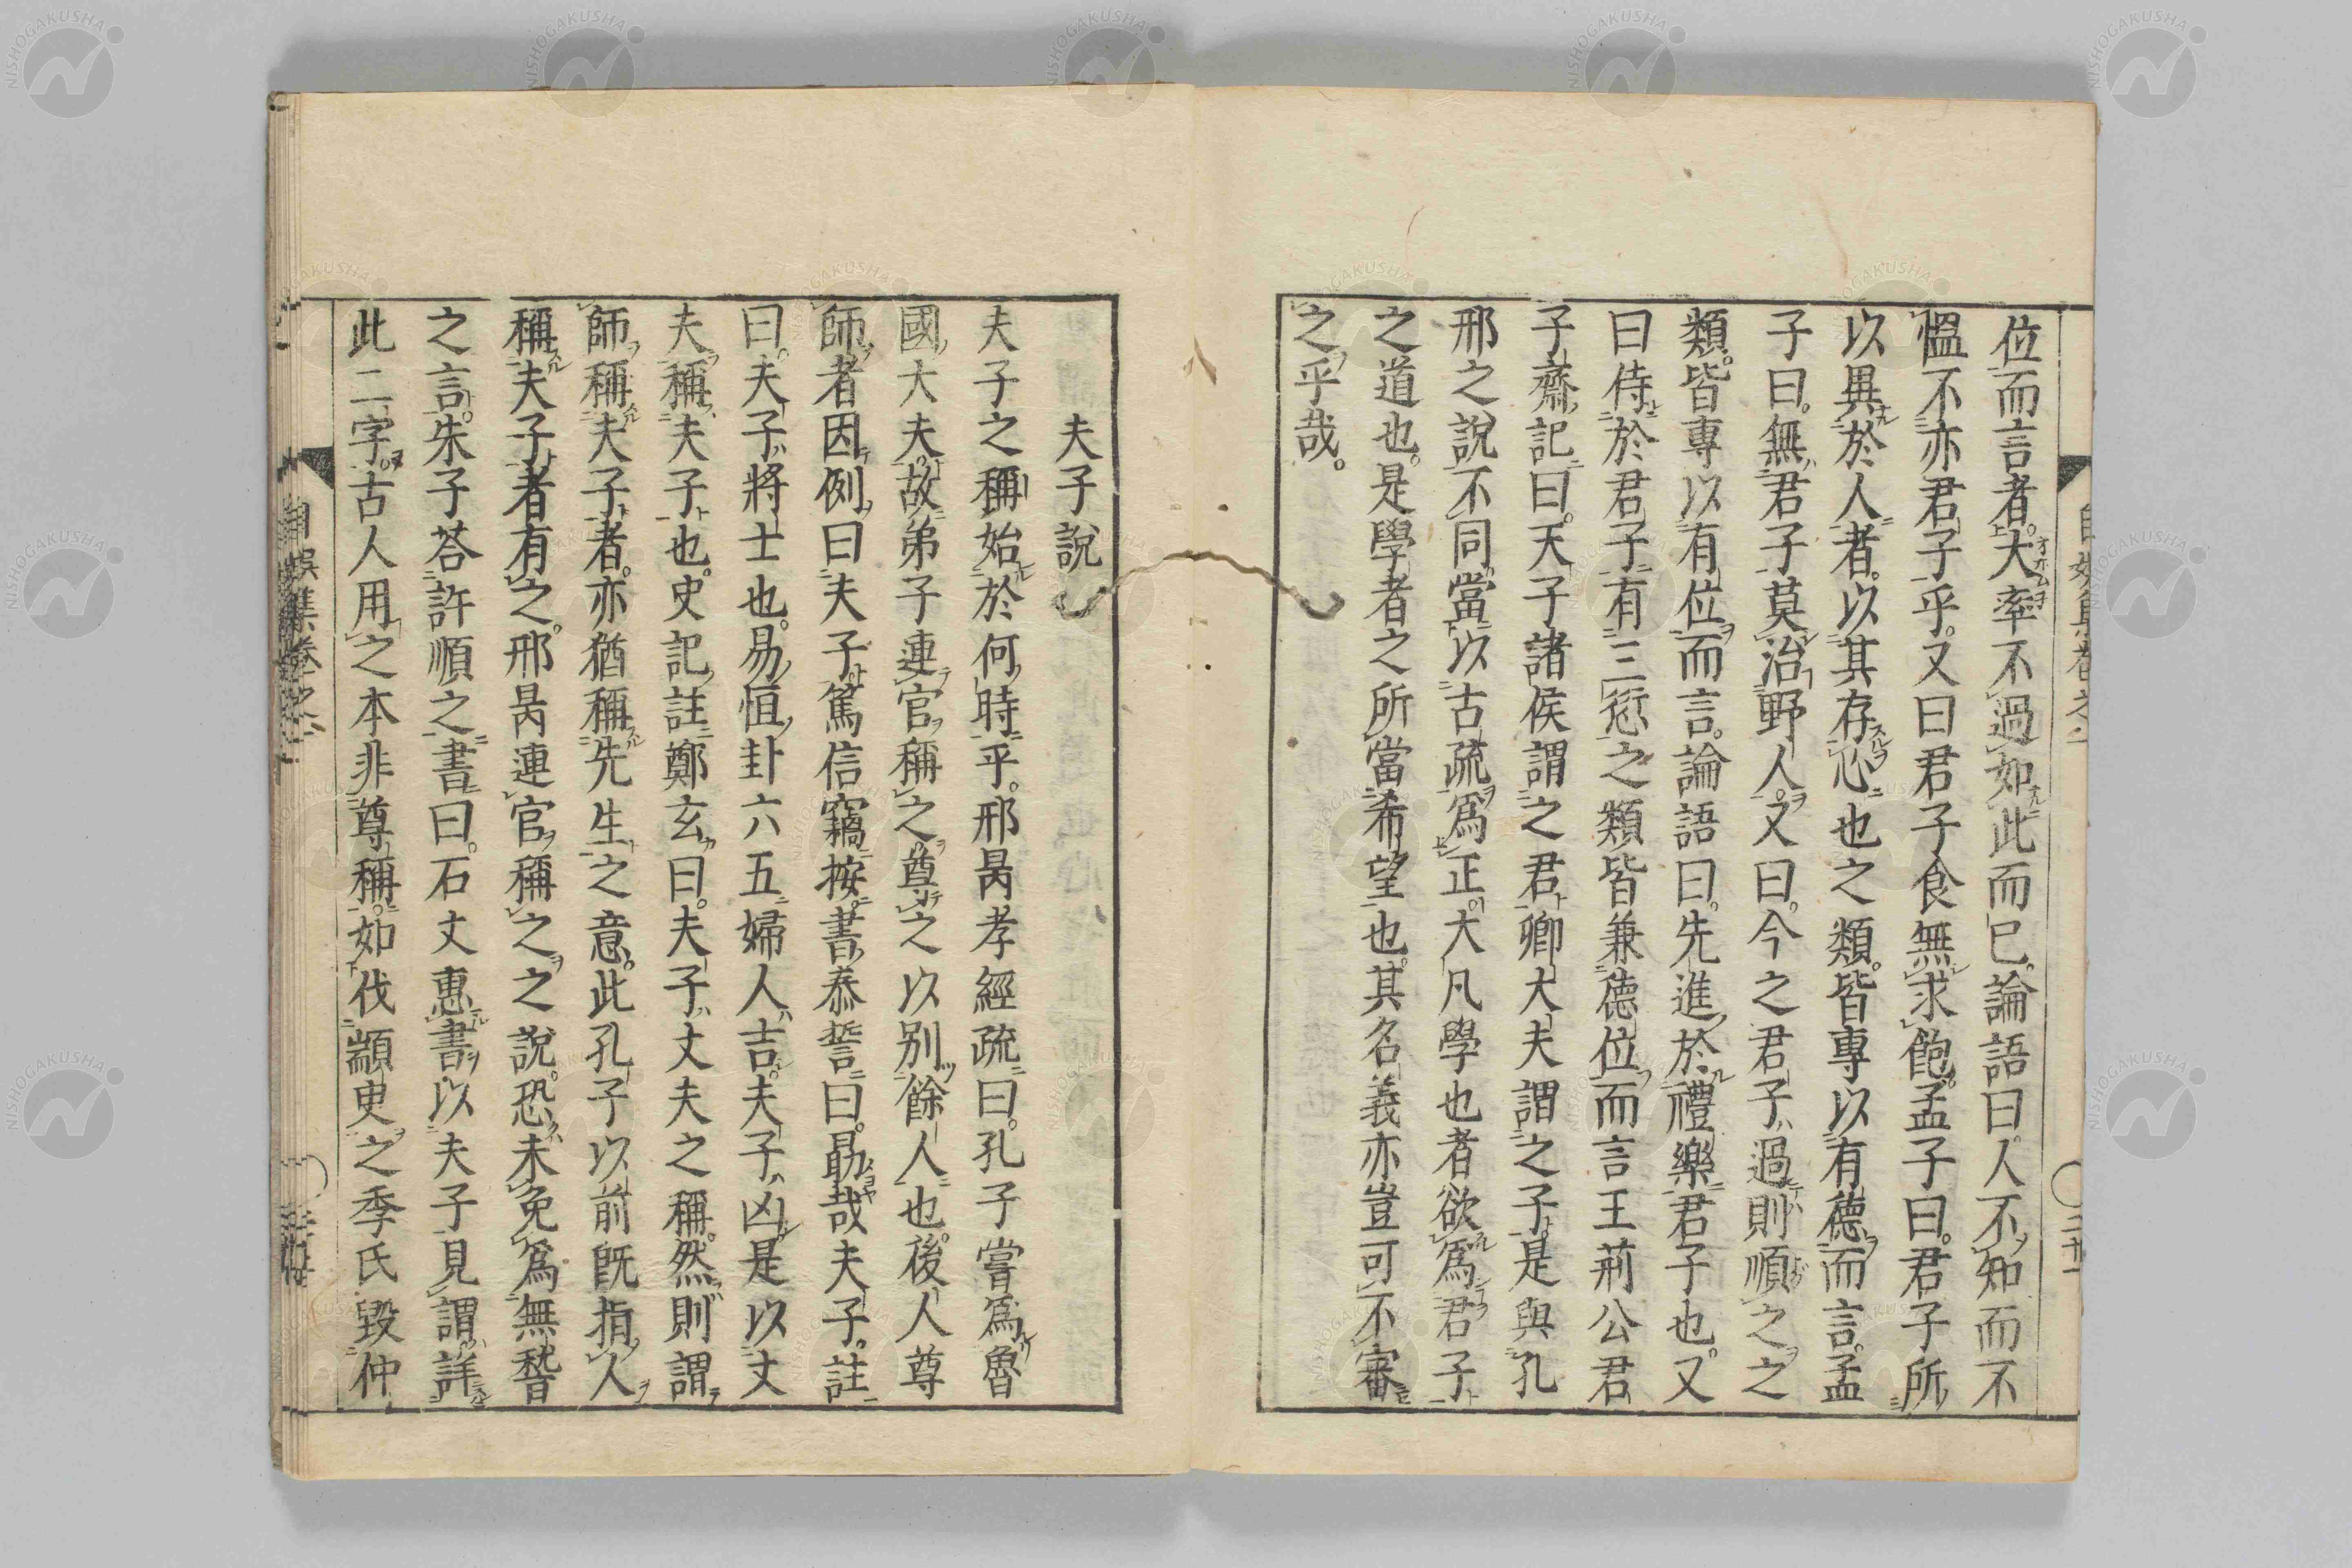 位而言者。大率不過如此而已。論語曰。人不知而不
慍不亦君子乎。又曰君子食無求飽。孟子曰。君子所
以異於人者。以其存心也之類。皆專以有德而言。孟
子曰。無君子莫治野人。又曰。今之君子過則順之之
類。皆專以有位而言。論語曰。先進於禮樂君子也。又
曰侍於君子有三愆之類皆兼德位而言王荊公君
子齋記曰。天子諸侯謂之君卿大夫謂之子。是與孔
邢之說不同。當以古疏爲正。大凡學也者欲爲君子
之道也。是學者之所當希望也。其名義亦豈可不審
之乎哉。
夫子說
夫子之稱始於何時乎。邢昺孝經疏曰。孔子嘗爲魯
國大夫。故弟子連官稱之。尊之以別餘人也。後人尊
師者因例曰夫子。篤信竊按。書泰誓曰。勗哉夫子。註
曰。夫子將士也。易恒卦六五婦人吉。夫子凶。是以丈
夫稱夫子也。史記註鄭玄曰。夫子丈夫之稱。然則謂
師稱夫子者。亦猶稱先生之意。此孔子以前既指人
稱夫子者有之。邢昺連官稱之之說。恐未免爲無稽
之言。朱子荅許順之書曰。石丈惠書以夫子見謂。詳
此二字。古人用之本非尊稱。如伐顓臾之季氏毀仲
自娛集卷之六
NISHOGAKUSHA